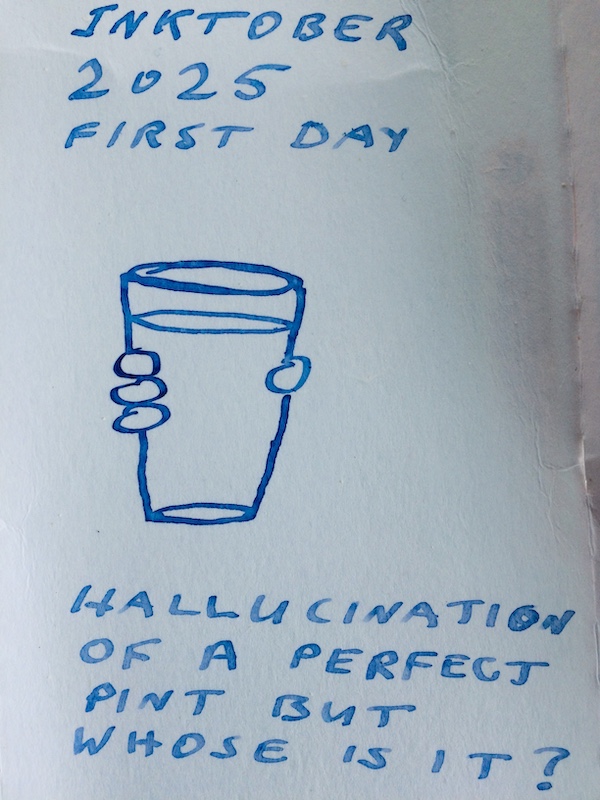 INKTOBER
2025
FIRST DAY
HALLUCINATION
OF A PERFECT
PINT BUT
WHOSE IS IT?